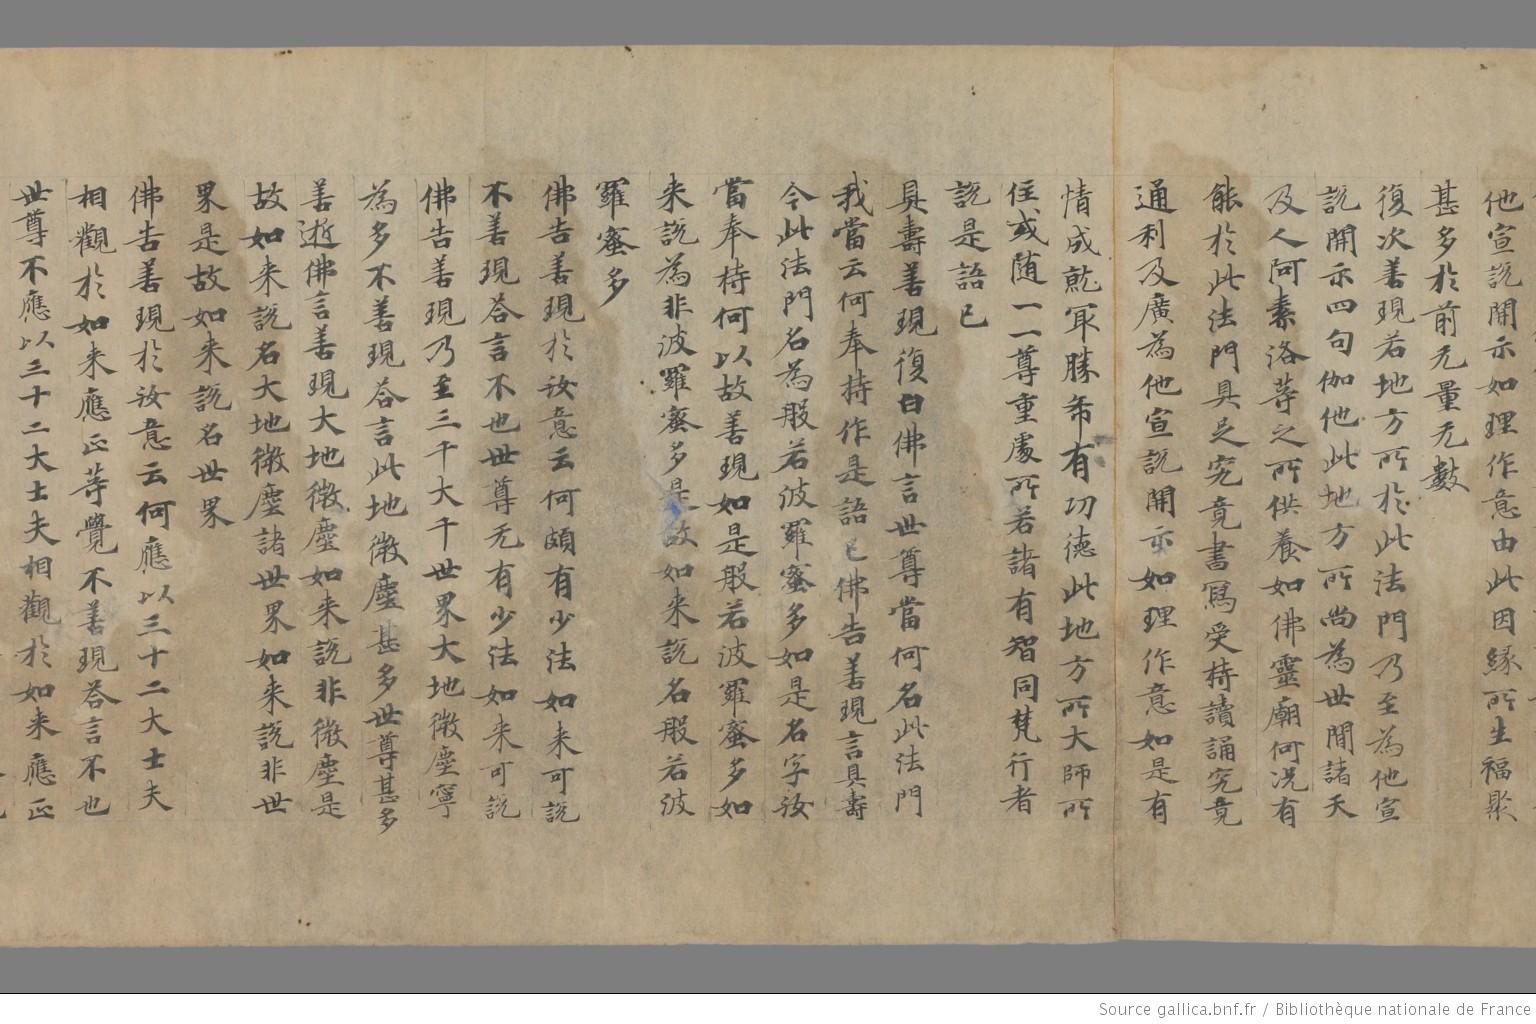 他宣説開示如理作意由此因緣所生福聚
甚多於前无量无數
復次善現若地方所於此法門乃至為他宣
説開示四句伽他此地方所尚為世間諸天
及人阿素洛等之所供養如佛靈廟何況有
能於此法門具足究竟書寫受持讀誦究竟
通利及廣為他宣説開示如理作意如是有
情成就冣勝希有功德此地方所大師所
住或随一一尊重處所若諸有智同梵行者
説是語已
具壽善現復白佛言世尊當何名此法門
我當云何奉持作是語已佛告善現言具壽
今此法門名為般若波羅蜜多如是名字汝
當奉持何以故善現如是般若波羅蜜多如
来説為非波羅蜜多是故如来説名般若波
羅蜜多
佛告善現於汝意云何頗有少法如来可説
不善現荅言不也世尊无有少法如来可説
佛告善現乃至三千大千世界大地微塵寧
為多不善現荅言此地微塵甚多世尊甚多
善逝佛言善現大地微塵如来説非微塵是
故如来説名大地微塵諸世界如来説非世
界是故如来説名世界
佛告善現於汝意云何應以三十二大士夫
相觀於如来應正等覺不善現荅言不也
世尊不應以三十二大士夫相觀於如来應正